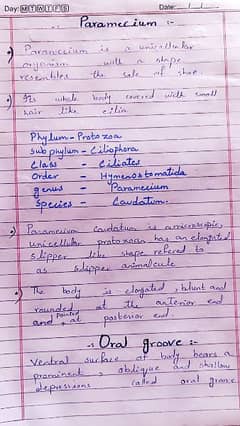 Day: M T W T F S Date: / /
Paramecium :-
Paramecium is a unicellular
organism with a shape
resembles the sole of shoe.
Its whole body covered with small
hair like cilia
Phylum - Protozoa
sub phylum - Ciliophora
Class - Ciliates
Order - Hymenostomatida
genus - Paramecium
Species - Caudatum.
Paramecium Caudatum is a microscopic,
unicellular protozoan has an elongated
slipper like shape refered to
as slipper animalcule
The body is elogated, blunt and
rounded at the anterior end
and pointed at posterior end.
:- Oral groove :-
Ventral surface of body bears a
prominent, oblique and shallow
depressions called oral groove